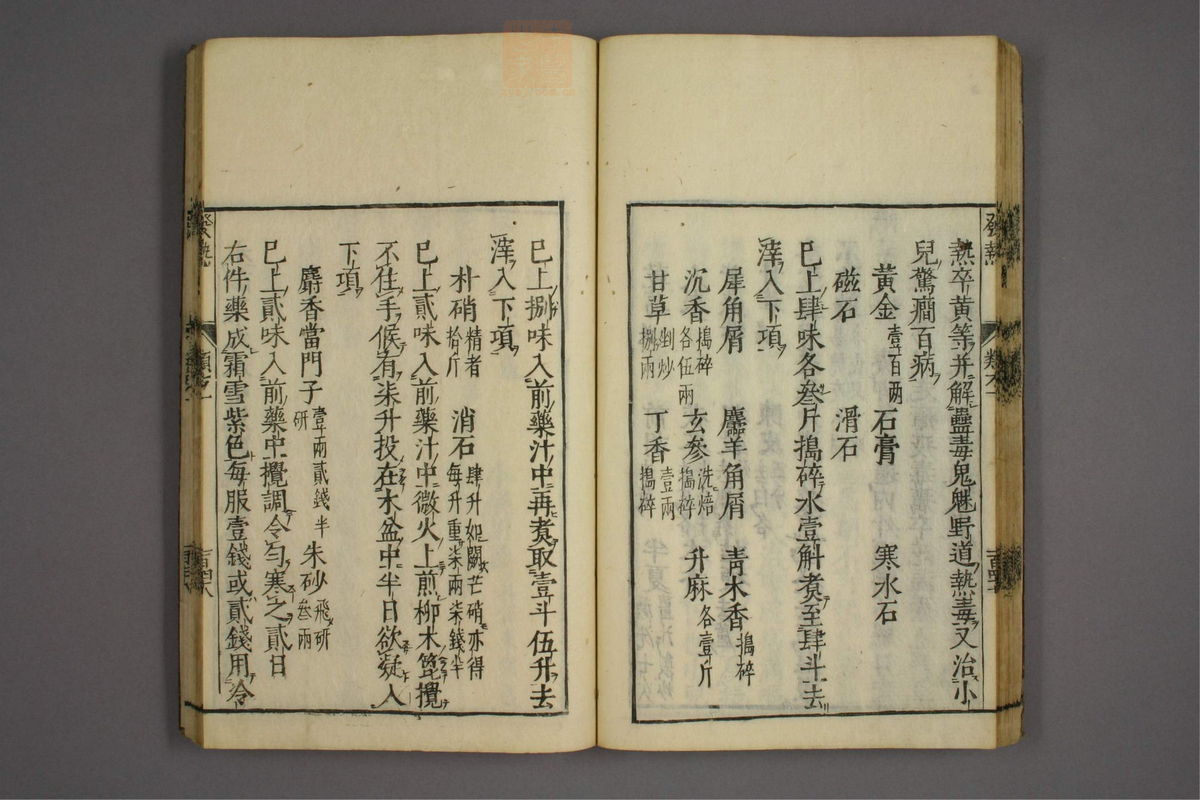 熱卒黃等并解蠱毒鬼魅野道熱毒又治小
兒驚癎百病
黃金壹百兩 石膏 寒水石
磁石 滑石
已上肆味各叄斤搗碎水壹斛煮至肆斗去
滓入下項
犀角屑 羚羊角屑 青木香搗碎
沉香搗碎各伍兩 玄參洗焙搗碎 升麻各壹斤
甘草剉炒捌兩 丁香壹兩搗碎
已上捌味入前藥汁中再煮取壹斗伍升去
滓入下項
朴硝精者拾斤 消石肆升如闕芒硝亦得每升重柒兩柒錢半
已上貳味入前藥汁中微火上煎柳木篦攪
不住手候有柒升投在木盆中半日欲凝入
下項
麝香當門子壹兩貳錢半研 朱砂飛研叄兩
已上貳味入前藥中攪調令勻寒之貳日
右件藥成霜雪紫色每服壹錢或貳錢用冷
發熱
類